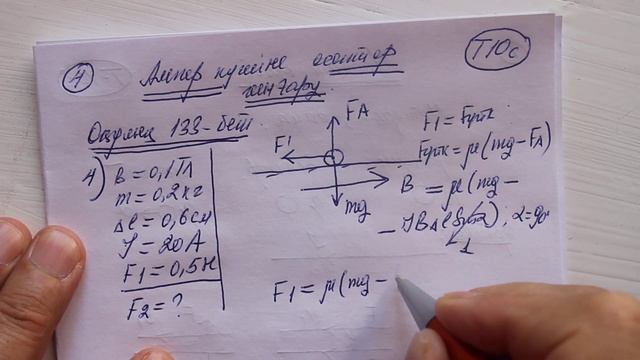 4
Ампер күшіне есептер
шығару.
T10c
Оқулық 133-бет.
4)
B = 0,1Тл
m = 0,2кг
Δl = 0,6см
I = 20А
F1 = 0,5Н
F2 = ?
FA
F1
B
mg
F1 = Fүйк
Fүйк = μ(mg - FA)
= μ(mg -
- IBΔl sinα); α=90°
1
F1 = μ(mg -